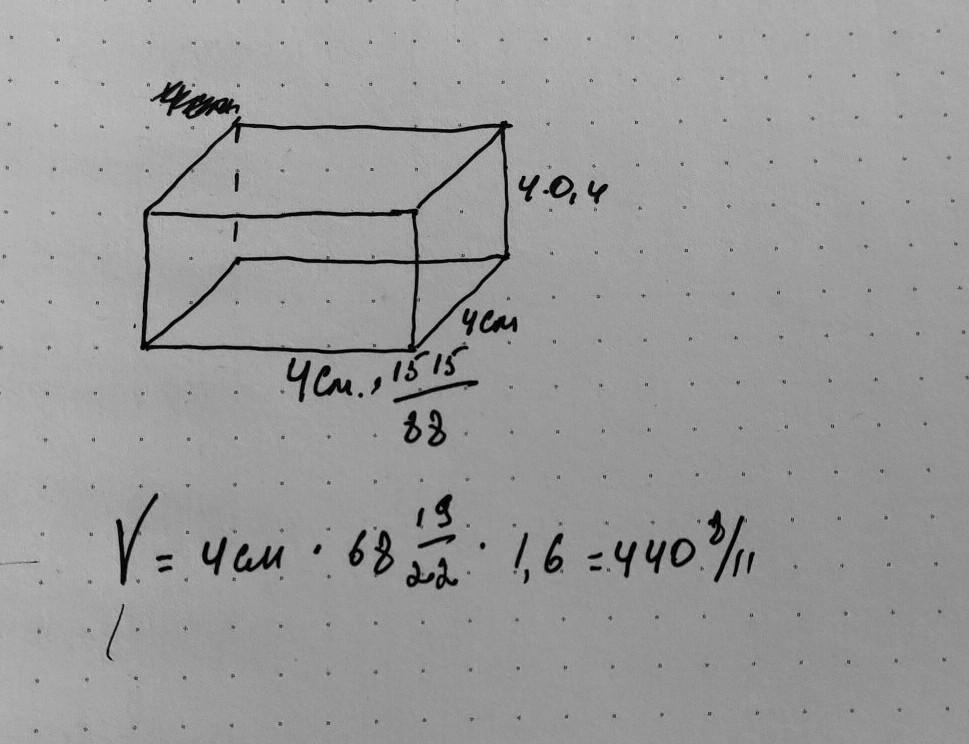 4·0,4
4см
4см. · 1515/88
V = 4см · 68 19/22 · 1,6 = 440 8/11